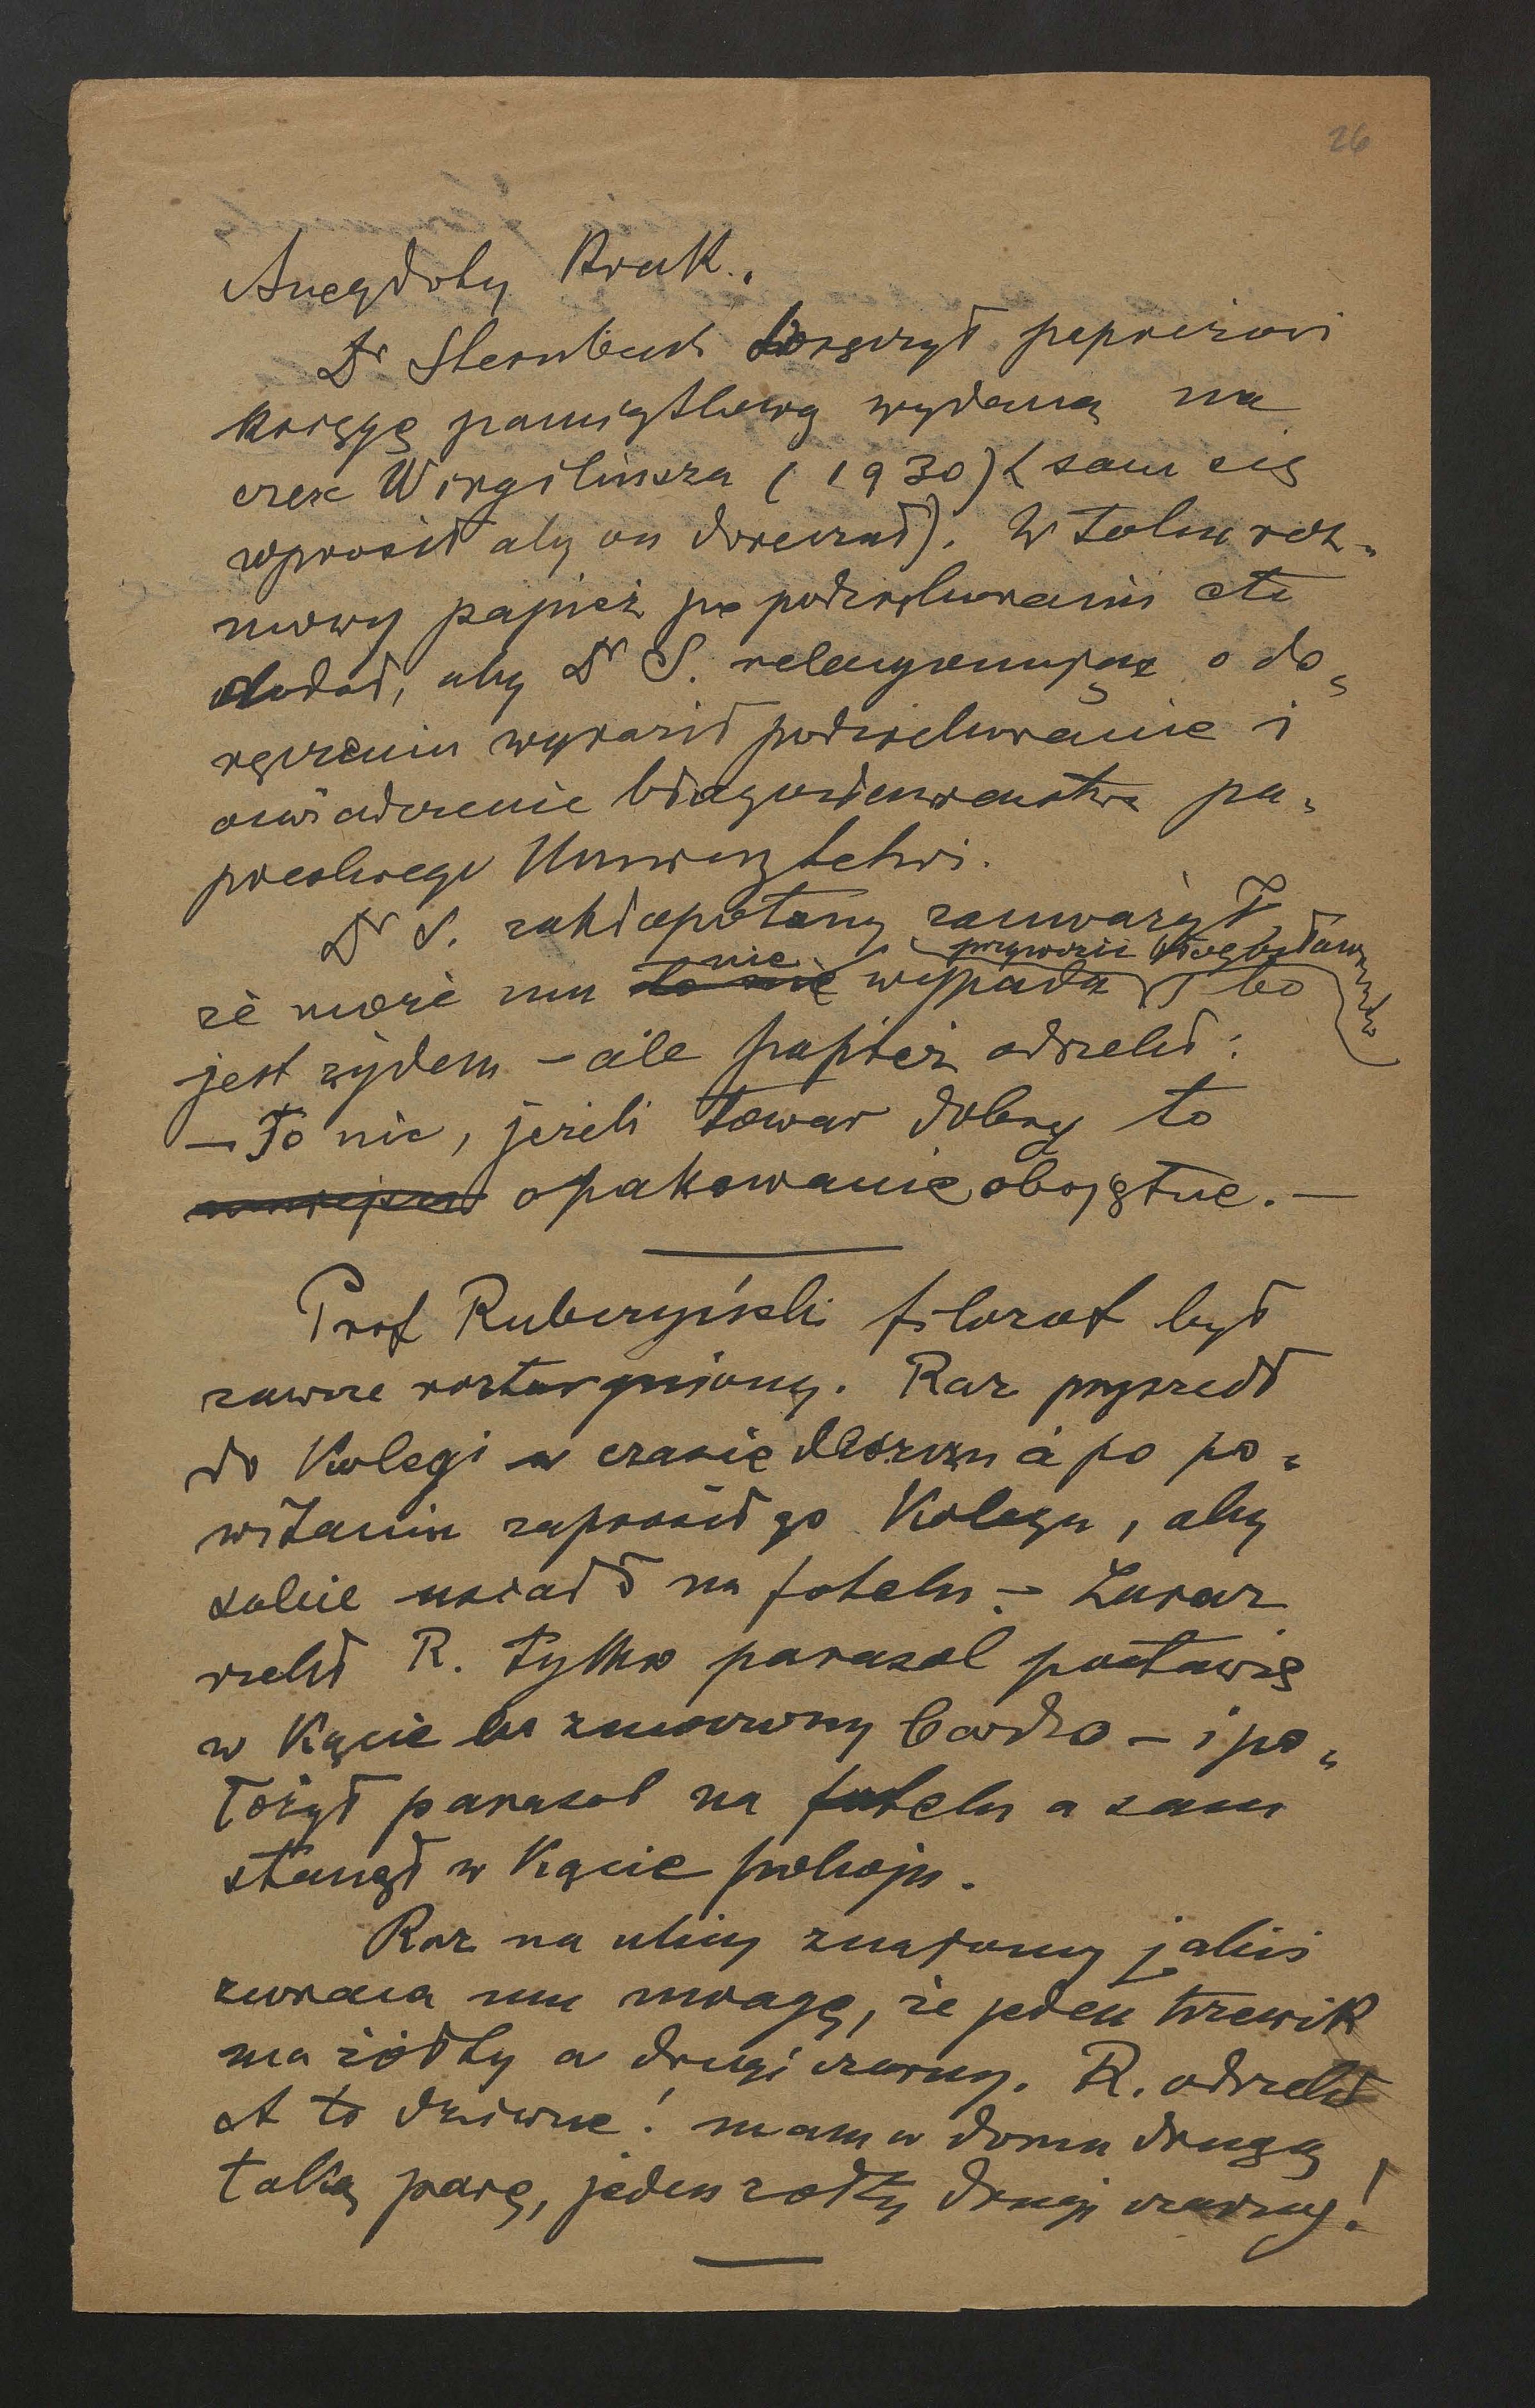 26
Anegdoty Krak.
Dr Sternbach doręczył papieżowi
księgę pamiątkową wydaną na
cześć Wirgiliusza (1930) (sam się
wprosił aby on doręczał). W toku roz-
mowy papież po podziękowaniu etc
dodał, aby Dr S. relacyonując o do-
ręczeniu wyraził podziękowanie i
oświadczenie błogosławieństwa pa-
pieskiego Uniwersytetowi.
Dr S. zakłopotany zauważył,
że może mu nie wypada przywozić błogosławieństwo bo
jest żydem – ale papież odrzekł:
– To nic, jeżeli towar dobry to
opakowanie obojętne. –
Prof Rubczyński filozof był
zawsze roztargniony. Raz przyszedł
do Kolegi w czasie deszczu a po po-
witaniu zaprosił go Kolega, aby
sobie usiadł na fotelu – Zaraz
rzekł R. tylko parasol postawię
w Kącie bo zmoczony bardzo – i po-
łożył parasol na fotelu a sam
stanął w Kącie pokoju.
Raz na ulicy znajomy jakiś
zwraca mu uwagę, że jeden trzewik
ma żółty a drugi czarny. R. odrzekł
A to dziwne! mam w domu drugą
taką parę, jeden żółty drugi czarny!